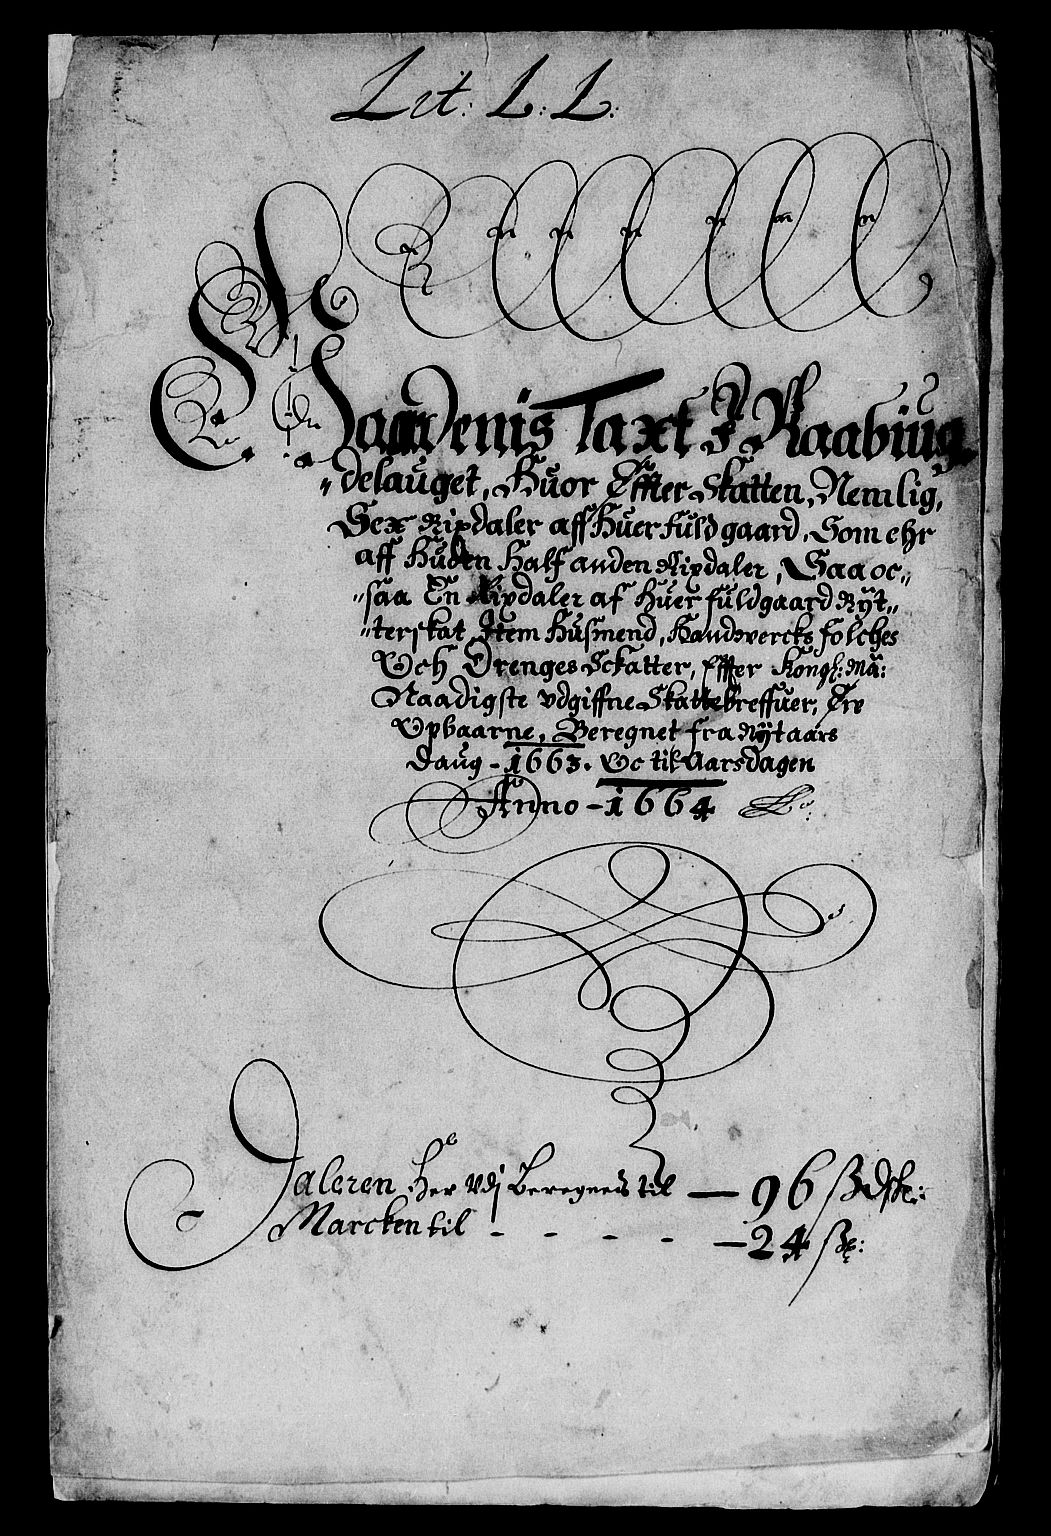 Lit: L: L:
Gaardenis Taxt J Raabiug
delauget, Huor Effter Skatten, Nemlig,
Sex Rixdaler aff Huer fuldgaard, Som ehr
aff Huden Half anden Rixdaler, Saa oc
saa En Rixdaler af Huer fuldgaard Ryt
terskat, Item Husmend, Handwercks folches
Och Drenges Sckatter, Effter Kongl: Ma:
Naadigste vdgiffne Skattebreffuer, Ere
Opbaarne, Beregnet fra Nytaars
Daug - 1663. Oc til Aarsdagen
Anno - 1664
Daleren Her vdj Beregnes til — 96 ß dsk:
Marcken til - - - - — 24 ß: